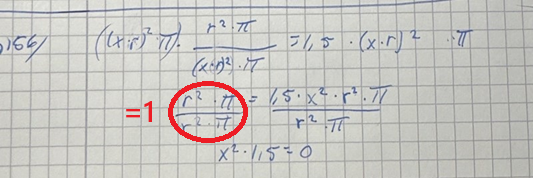 156) ((x·r)²·π) · r²·π / (x·r)²·π = 1,5 · (x·r)² · π
=1 r²·π / r²·π = 1,5·x²·r²·π / r²·π
x²·1,5=0